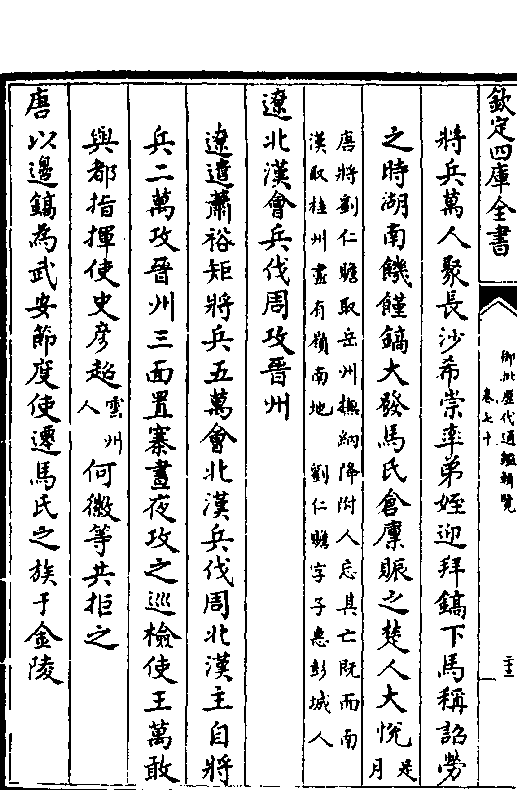 欽定四庫全書
御批歴代通鑑輯覽
卷七十
將兵萬人聚長沙希崇率弟姪迎拜鎬下馬稱詔勞
之時湖南饑饉鎬大發馬氏倉廩賑之楚人大悅是
月
唐將劉仁贍取岳州撫納降附人忘其亡既而南
漢取桂州盡有嶺南地 劉仁贍字子惠彭城人
遼北漢會兵伐周攻晉州
遼遣蕭裕矩將兵五萬會北漢兵伐周北漢主自將
兵二萬攻晉州三面置寨晝夜攻之巡檢使王萬敢
與都指揮使史彥超雲州
人何徽等共拒之
唐以邊鎬為武安節度使遷馬氏之族于金陵